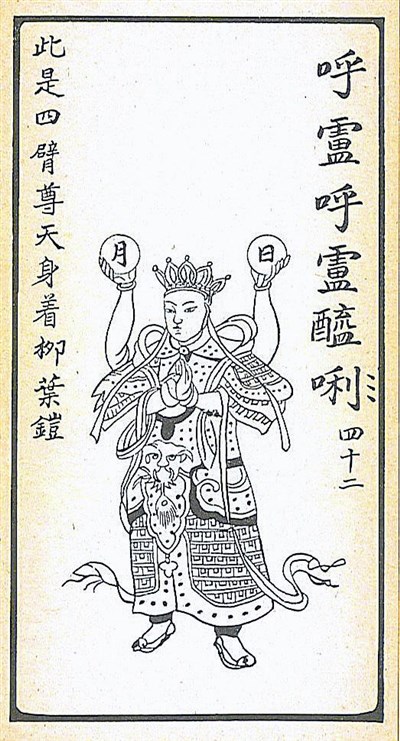 呼盧呼盧醯唎四十二
日
月
此是四臂尊天身着柳葉鎧